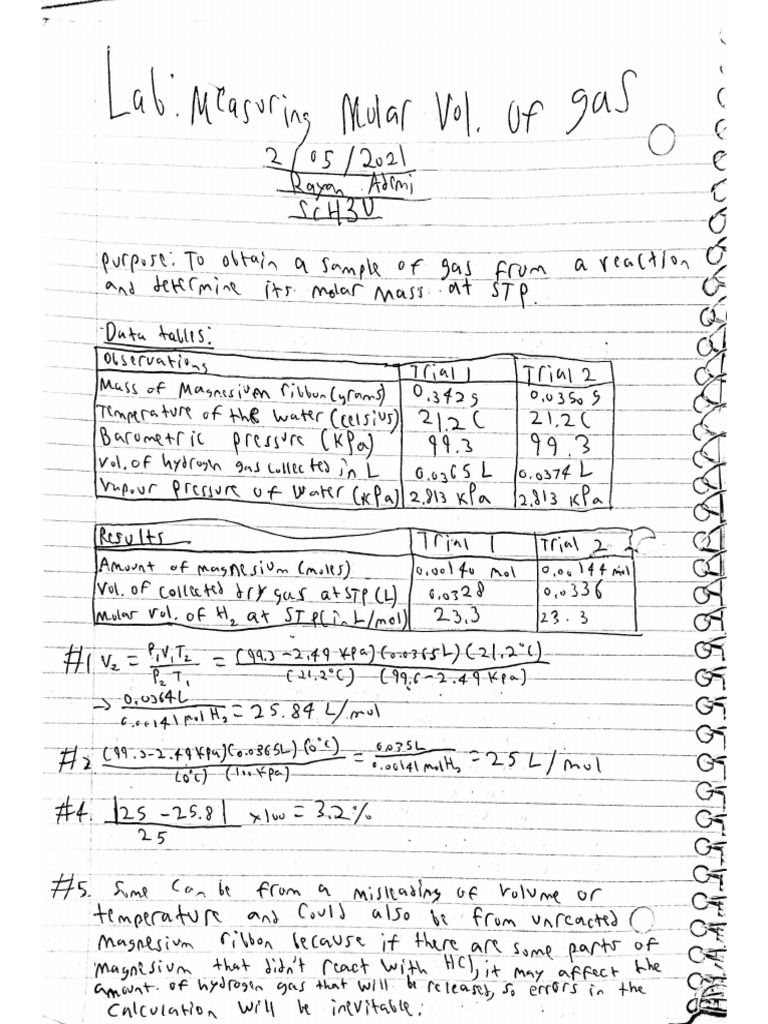 Lab: Measuring Molar Vol. of gas
2/05/2021
Rayan Ademi
SCH3U
purpose: To obtain a sample of gas from a reaction
and determine its molar mass at STP.
Data tables:
Observations Trial 1 Trial 2
Mass of Magnesium ribbon (grams) 0.342g 0.0350g
Temperature of the water (celsius) 21.2 C 21.2 C
Barometric pressure (KPa) 99.3 99.3
Vol. of hydrogn gas collected in L 0.0365 L 0.0374 L
Vapour Pressure of water (KPa) 2.813 KPa 2.813 KPa
Results Trial 1 Trial 2
Amount of magnesium (moles) 0.00140 mol 0.00144 mol
Vol. of collected dry gas at STP (L) 0.0328 0.0336
Molar Vol. of H2 at STP (in L/mol) 23.3 23.3
#1 V2 = P1V1T2 / P2T1 = (99.3-2.49 KPa)(0.0365L)(21.2°C) / (21.2°C) (99.6-2.49KPa)
→ 0.0364L / 0.00141 mol H2 = 25.84 L/mol
#2. (99.3-2.49KPa)(0.0365L)(0°C) / (0°C) (100KPa) = 0.035L / 0.00141 mol H2 = 25 L/mol
#4. |25 - 25.8| / 25 x100 = 3.2%
#5. Some can be from a misleading of volume or
temperature and could also be from unreacted
magnesium ribbon because if there are some parts of
magnesium that didn't react with HCl, it may affect the
amount of hydrogen gas that will be released, so errors in the
calculation will be inevitable.